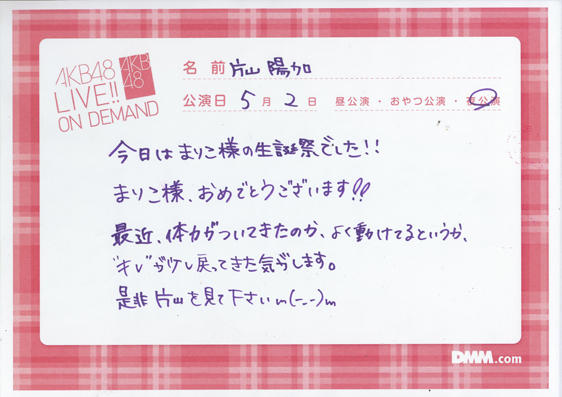 AKB48
LIVE!!
ON DEMAND
AKB
48
名 前 片山 陽加
公演日 5 月 2 日 昼公演・おやつ公演・夜公演
今日はまりこ様の生誕祭でした!!
まりこ様、おめでとうございます!!
最近、体力がついてきたのか、よく動けてるというか、
"キレ"が少し戻ってきた気がします。
是非 片山を見て下さいm(-_-)m
DMM.com